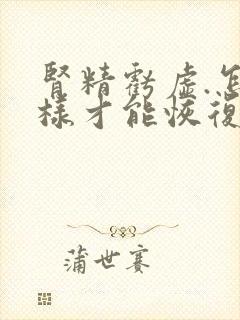 腎精虧虛.怎
樣才能恢復
蒲世賽